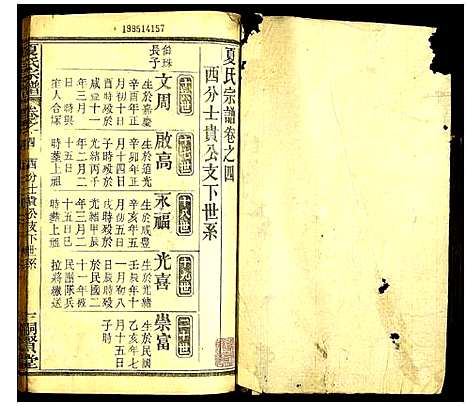 199514157
夏氏宗譜卷之四
西分士貴公支下世系
長子
文周
生於嘉慶
辛酉年正
月初七日
子時殁於
咸豐十一
年三月二
日時與
室人合塚
啟高
生於道光
辛卯年正
月十四日
子時殁於
光緒丙午
年三月
十五日
時葬上祖
十八世
永福
生於咸豐
辛亥年五
月初五日
戌時殁於
光緒甲辰
年三月二
十五日巳
時葬上祖
十九世
光喜
生於光緒
壬辰年十
一月初八
日辰時殁
於民國二
十一年被
民團隊兵
拉將縴送
崇富
生於民國
乙亥年七
月十五日
子時
夏氏宗譜
卷之四
西分士貴公支下世系
一
賢堂